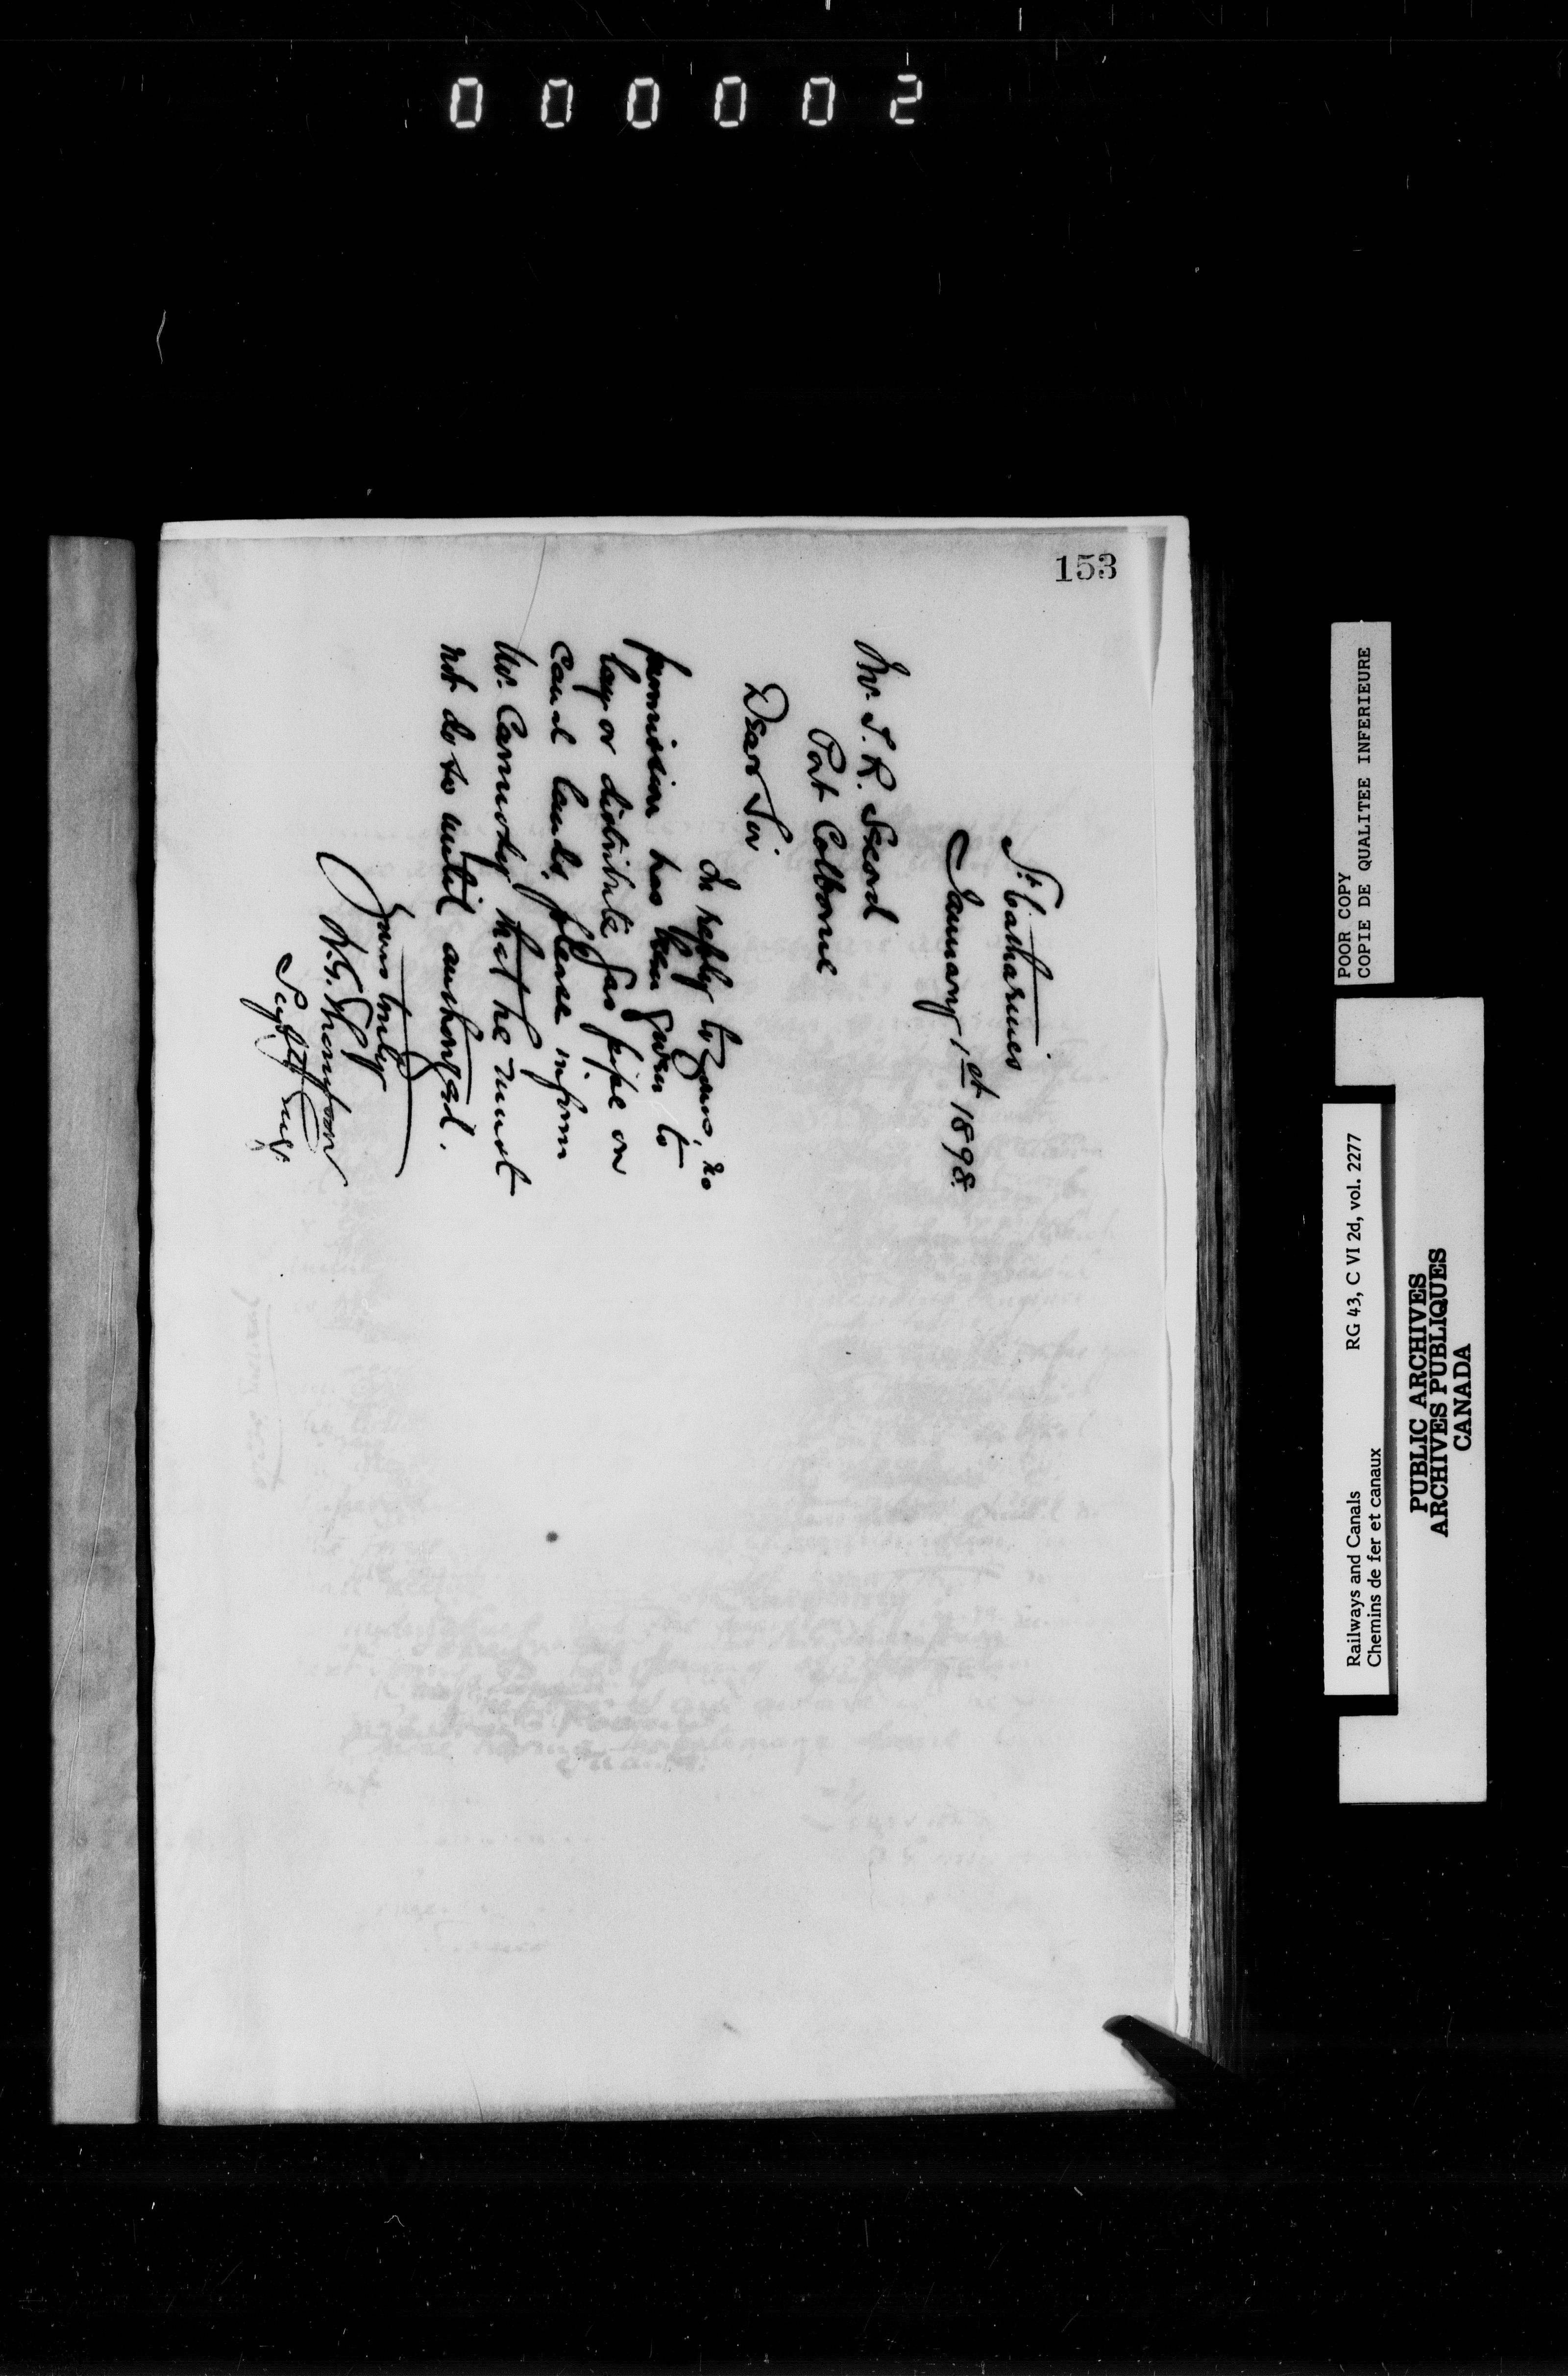 000002
153
St. Catharines
January 1st 1898.
Mr. S. R. Secord
Port Colborne
Dear Sir
In reply to yours, no
permission has been given to
lay or distribute gas pipe on
Canal lands, please inform
Mr. Carmody that he must
not do so until authorized.
Yours truly
W. G. Thompson
Supt g Engr.
POOR COPY
COPIE DE QUALITEE INFERIEURE
Railways and Canals RG 43, C VI 2d, vol. 2277
Chemins de fer et canaux
PUBLIC ARCHIVES
ARCHIVES PUBLIQUES
CANADA